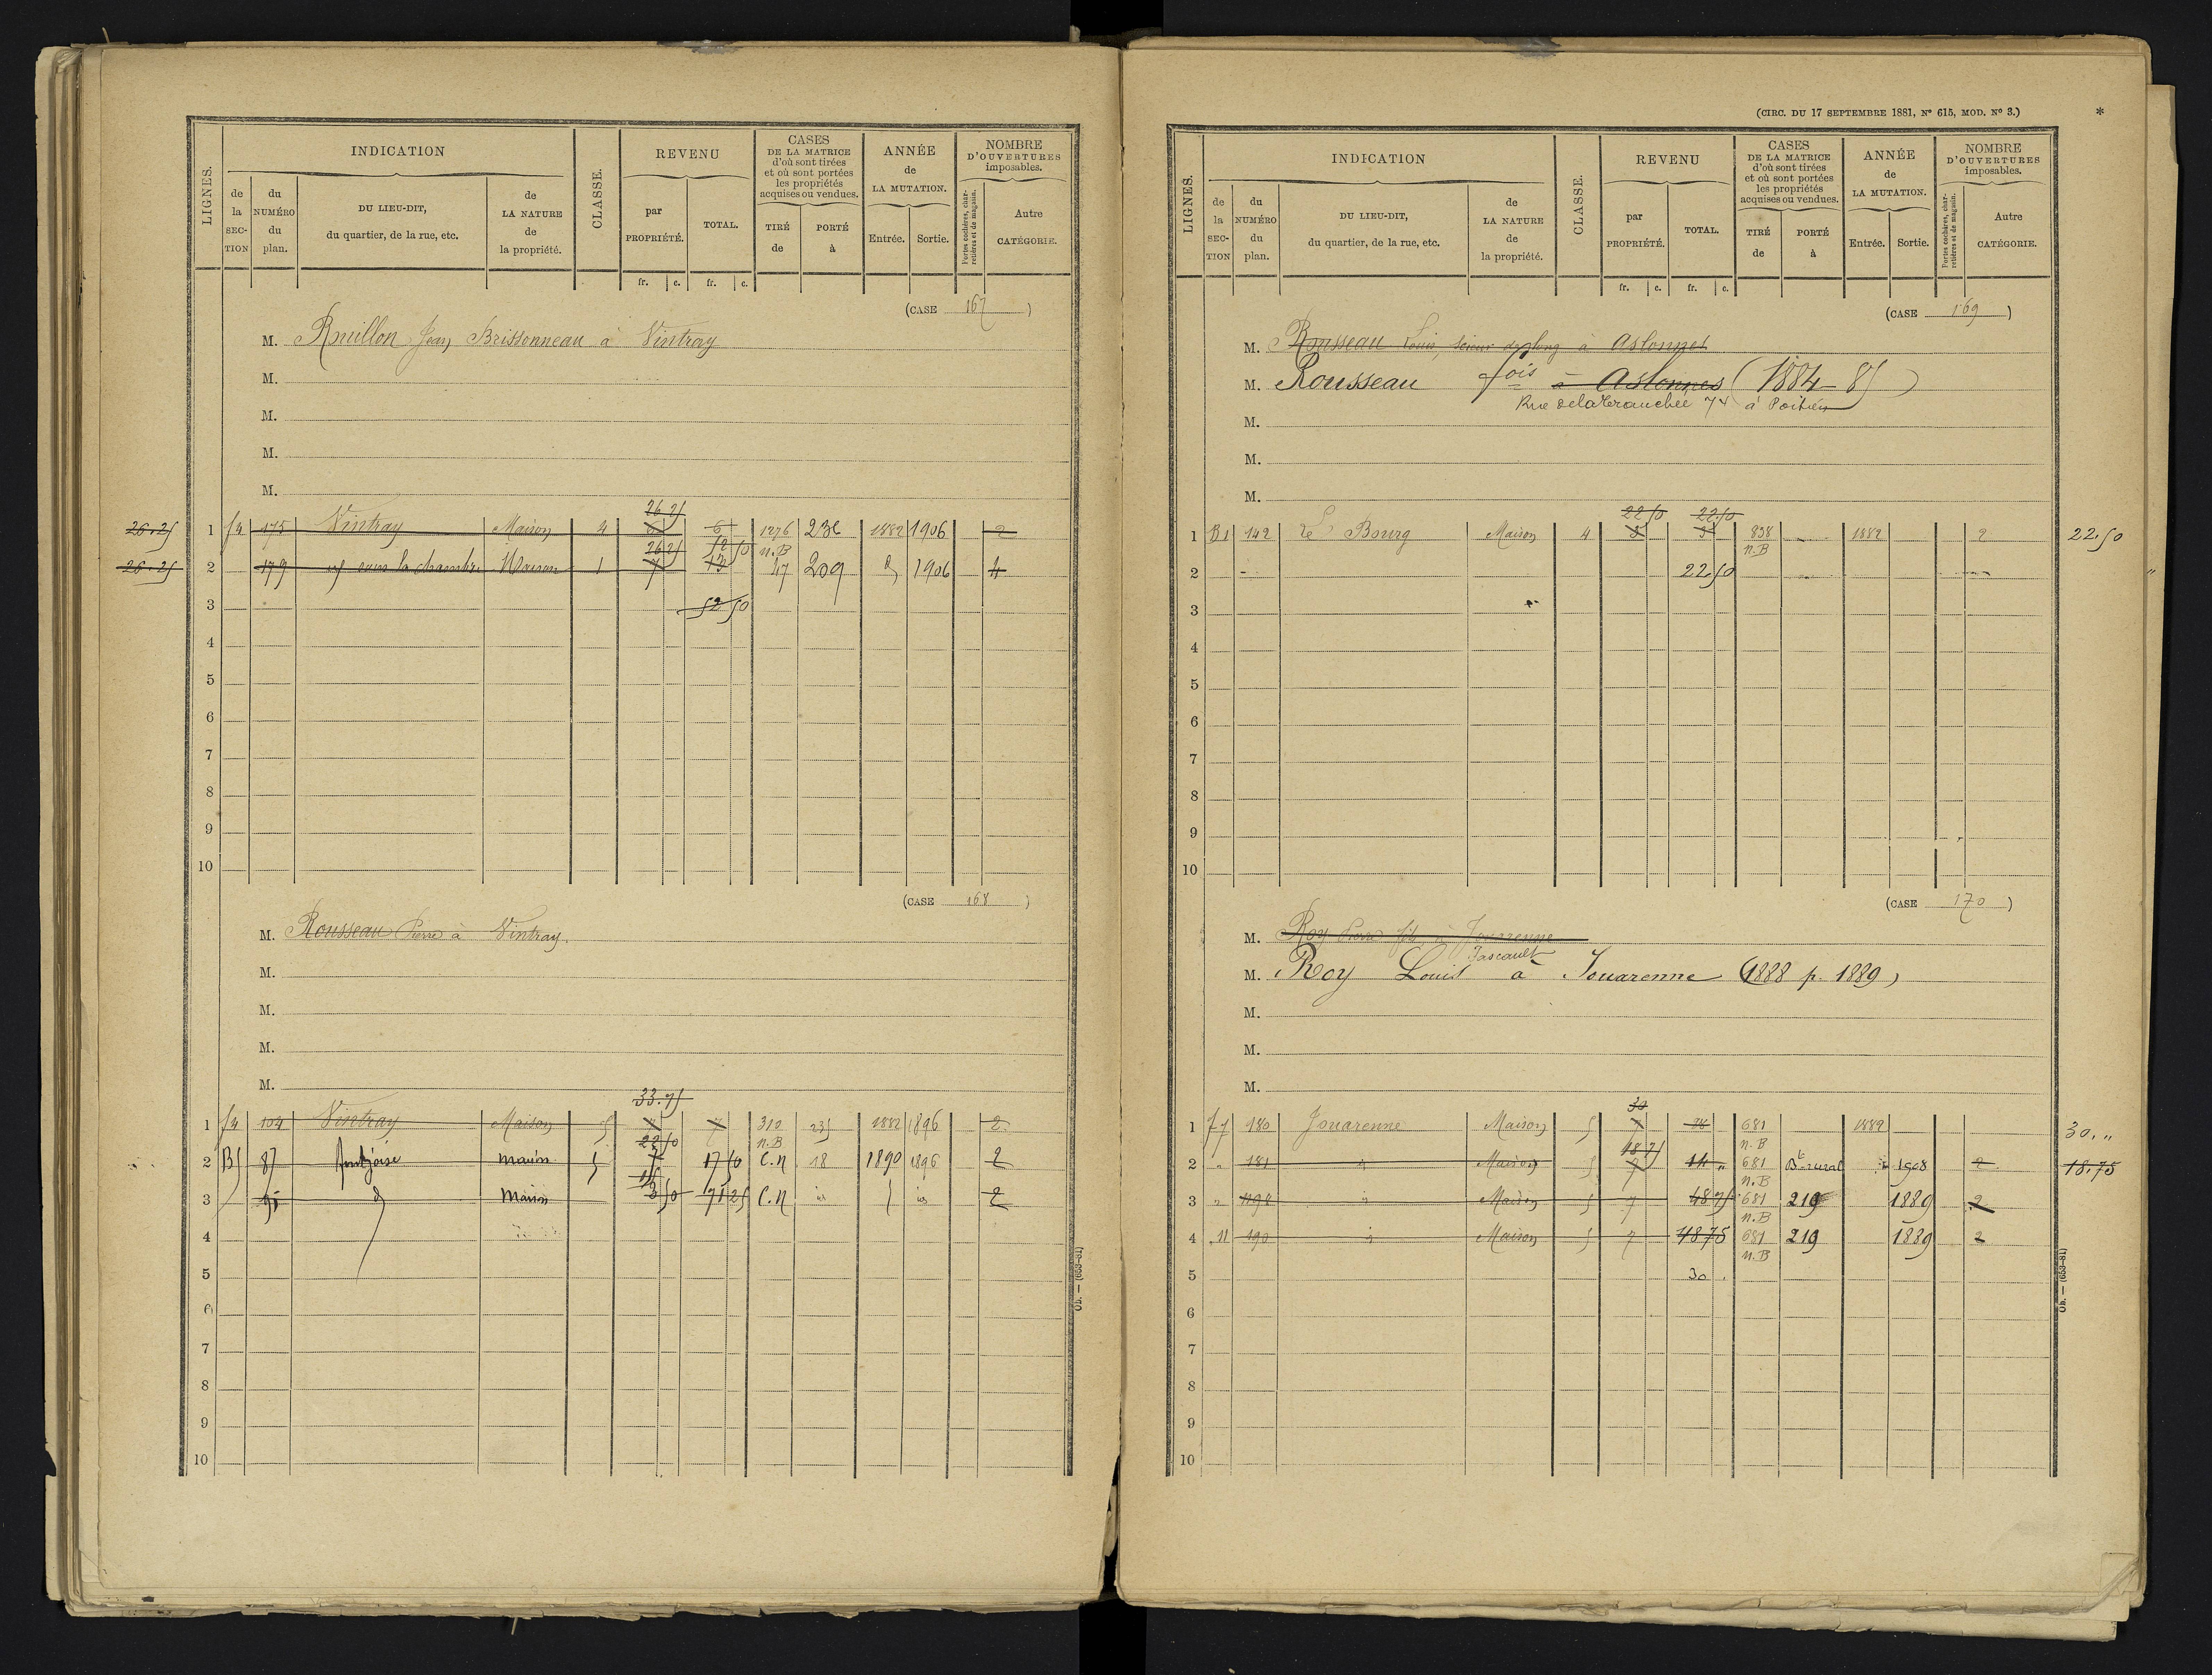 INDICATION
REVENU
CASES
DE LA MATRICE
d'où sont tirées
et où sont portées
les propriétés
acquises ou vendues.
ANNÉE
de
LA MUTATION.
NOMBRE
D'OUVERTURES
imposables.
LIGNES.
de la SECTION
du NUMÉRO du plan.
DU LIEU-DIT,
du quartier, de la rue, etc.
de LA NATURE de la propriété.
CLASSE.
par PROPRIÉTÉ.
TOTAL.
TIRÉ de
PORTÉ à
Entrée.
Sortie.
Portes cochères, charretières et de magasin.
Autre CATÉGORIE.
fr. c. fr. c.
(CASE 167)
M. Rouillon Jean Brissonneau à Vintray
M.
M.
M.
M.
26 25
26.25 1 175 Vintray Maison 4 6 1276 236 1882 1906 2
26 25 12 50 n.B
26.25 2 179 Maison 1 7 13 47 209 1906 4
3 52 50
4
5
6
7
8
9
10
(CASE 168)
M. Rousseau Pierre à Vintray.
M.
M.
M.
M.
33.75
1 104 Vintray Maison 5 7 7 312 235 1882 1896 2
22 50 n.B
2 B5 87 maison 5 7 17 50 C.n 18 1890 1896 2
15
3 95 d maison 3 50 71 25 C.n 2
4
5
6
7
8
9
10
Ob. — (653-81)
(CIRC. DU 17 SEPTEMBRE 1881, N° 615, MOD. N° 3.) *
INDICATION
REVENU
CASES
DE LA MATRICE
d'où sont tirées
et où sont portées
les propriétés
acquises ou vendues.
ANNÉE
de
LA MUTATION.
NOMBRE
D'OUVERTURES
imposables.
LIGNES.
de la SECTION
du NUMÉRO du plan.
DU LIEU-DIT,
du quartier, de la rue, etc.
de LA NATURE de la propriété.
CLASSE.
par PROPRIÉTÉ.
TOTAL.
TIRÉ de
PORTÉ à
Entrée.
Sortie.
Portes cochères, charretières et de magasin.
Autre CATÉGORIE.
fr. c. fr. c.
(CASE 169)
M. Rousseau Louis, scieur de long à Aslonnes
M. Rousseau fois à Aslonnes (1884-85)
M. Rue de la Tranchée 74 à Poitiers
M.
M.
22 50 22.50
1 B1 142 Le Bourg Maison 4 5 5 838 1882 2 22.50
n.B
2 22.50
3
4
5
6
7
8
9
10
(CASE 170)
M. Roy Pierre fils à Jouarenne
Pascault
M. Roy Louis à Jouarenne (1888 p. 1889)
M.
M.
M.
30
1 F7 180 Jouarenne Maison 5 7 28 681 1882 30. "
18 75 n.B
2 " 181 Maison 5 7 14 " 681 Bt rural 1908 2 18.75
n.B
3 " Maison 5 7 48.75 681 219 1889 2
n.B
4 190 Maison 5 7 48.75 681 219 1889 2
n.B
5 30
6
7
8
9
10
Ob. — (653-81)